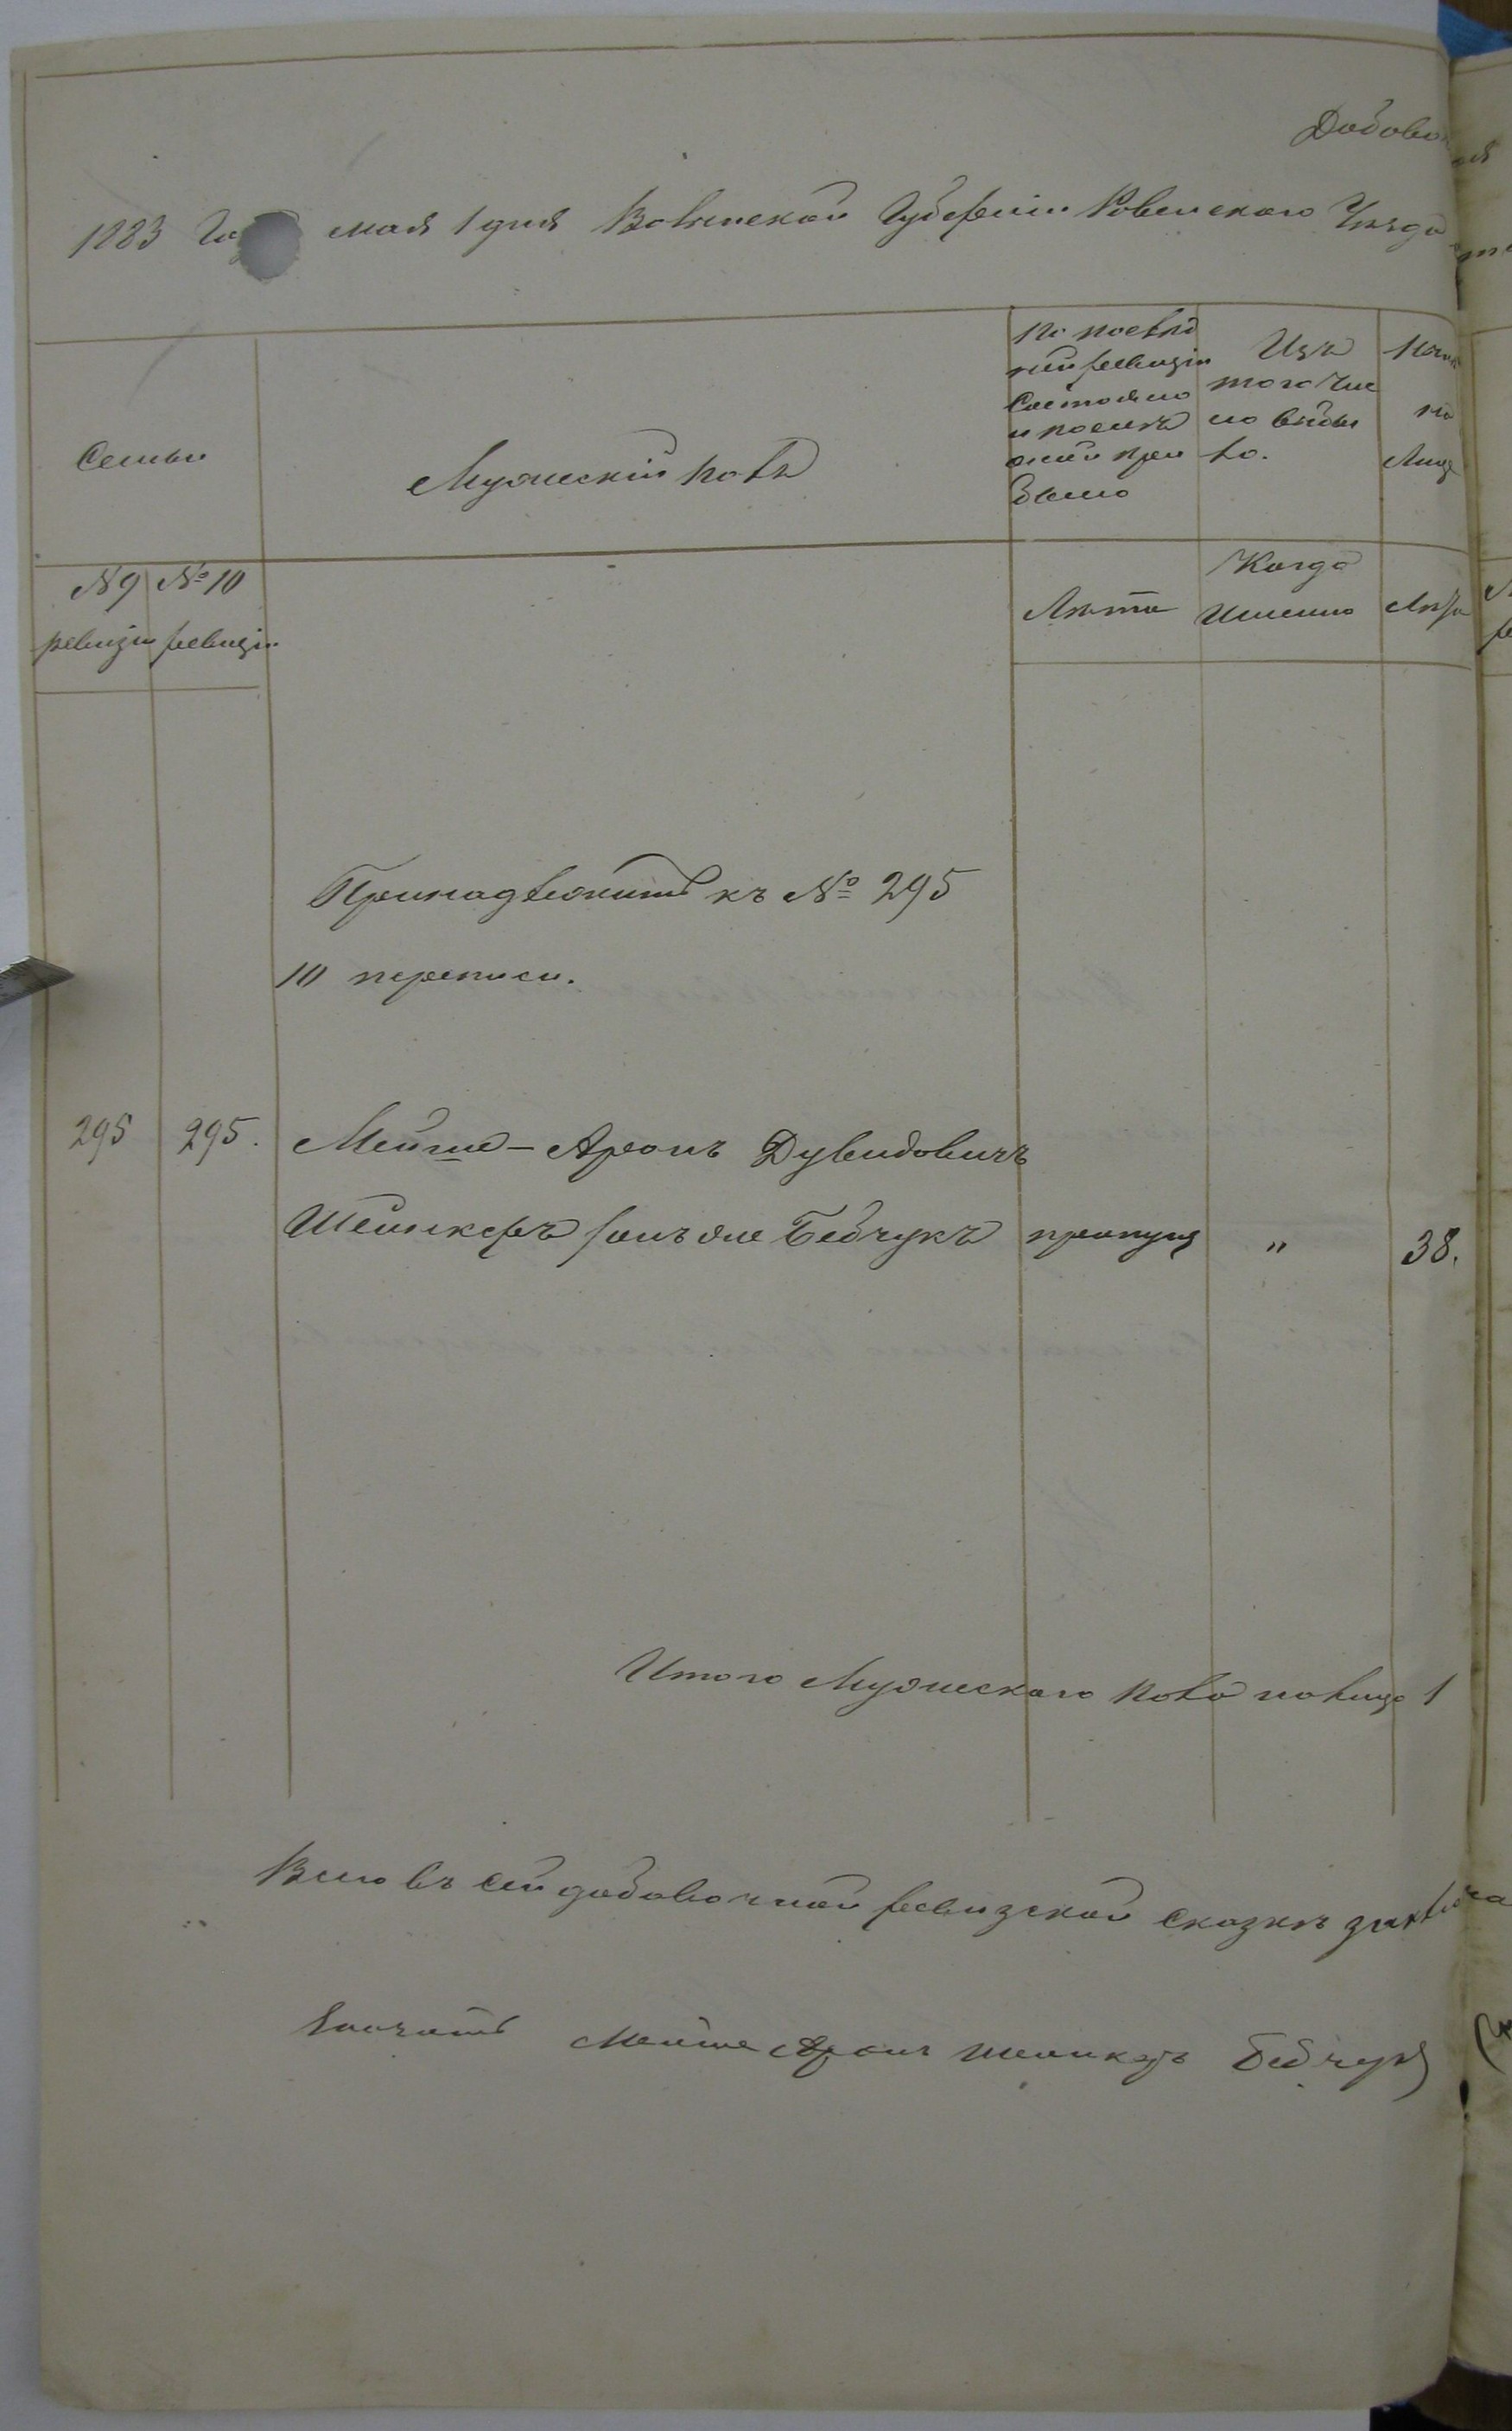 Добавоч
1883 Го мая 1 дня Волынской Губерніи Ровенскаго Уѣзда
Семьи
Мужескій полъ
По послѣд
ней ревизіи
состояло
и послѣ
оной при
было
Изъ
того чис
ла выбы
ло.
Ны
на
Лиц
№ 9
ревизіи
№ 10
ревизіи
Лѣта
Когда
Именно
Лѣта
Принадлежитъ къ № 295
10 переписи.
295 295. Мейше-Аронъ Дувидовичъ
Шейнкеръ онъ же Бебчукъ пропущ " 38.
Итого Мужескаго пола на лицо 1
Всего въ сей добавочной ревизской сказкѣ заключа
Мейше Аронъ Шейнкеръ Бебчукъ